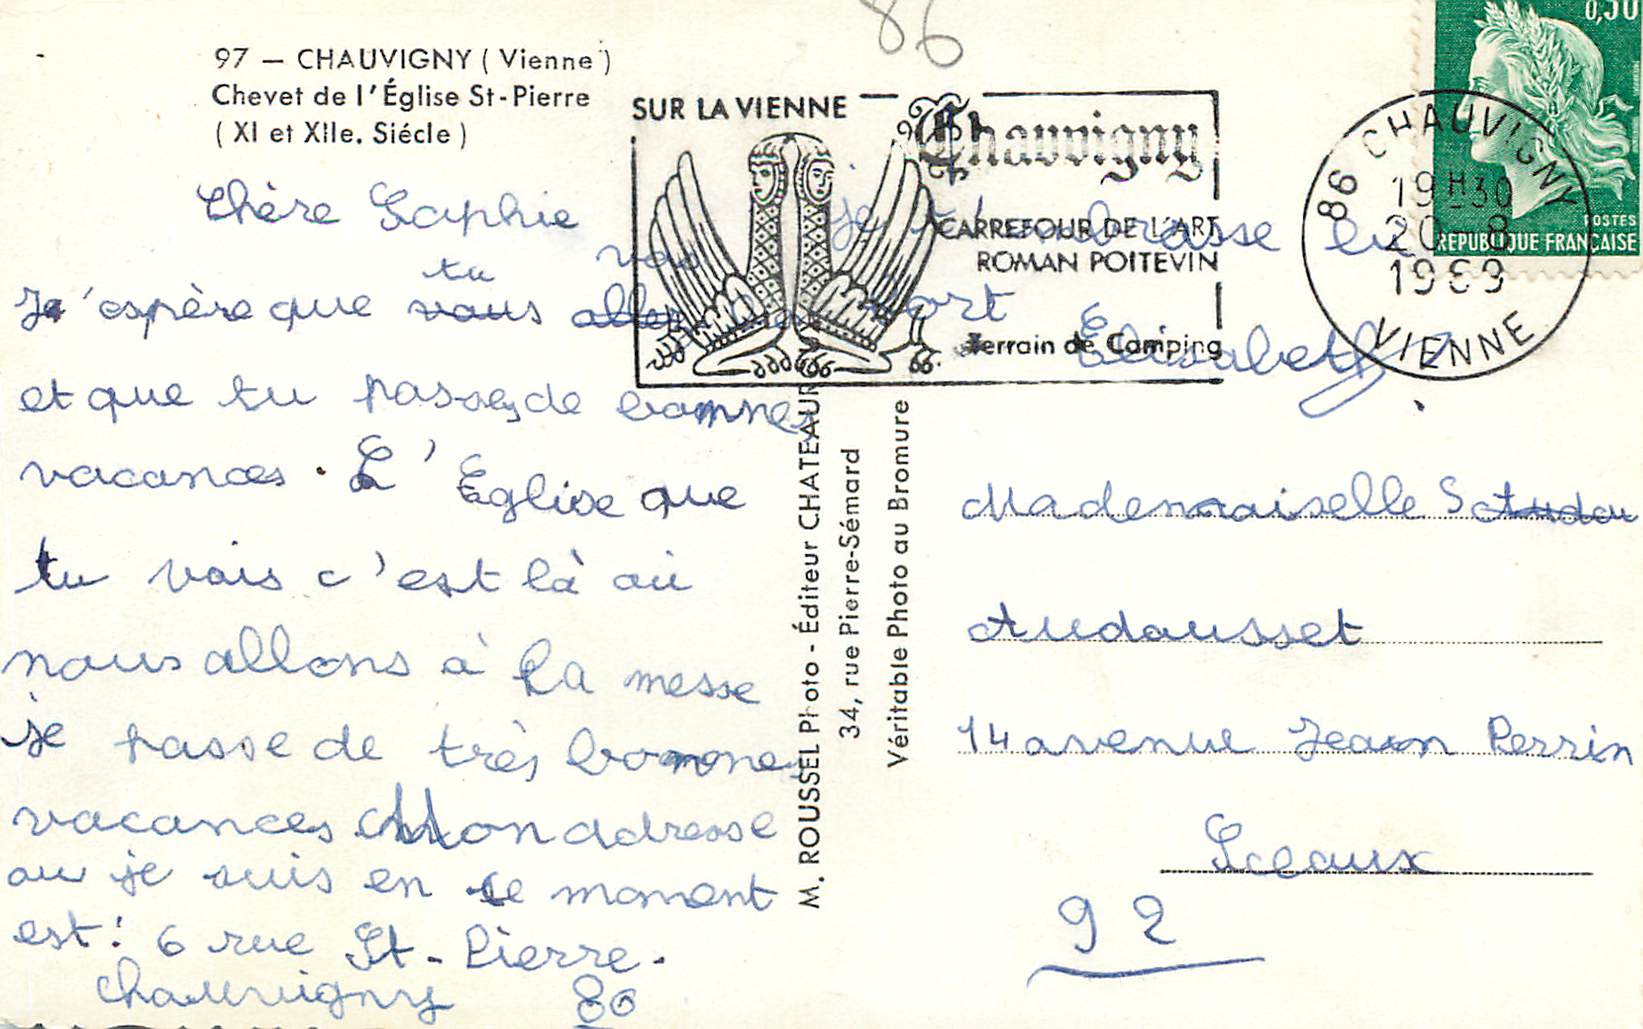 86
97 — CHAUVIGNY ( Vienne )
Chevet de l'Église St-Pierre
( XI et XIIe. Siécle )
SUR LA VIENNE
Chauvigny
CARREFOUR DE L'ART
ROMAN POITEVIN
Terrain de Camping
86 CHAUVIGNY
19H30
20-8
1969
VIENNE
0,30
POSTES
REPUBLIQUE FRANÇAISE
Chère Sophie
tu vas
J'espère que vous allez bien
et que tu passes de bonnes
vacances. L'Eglise que
tu vois c'est là où
nous allons à la messe
je passe de très bonnes
vacances Mon adresse
ou je suis en ce moment
est: 6 rue St-Pierre.
Chauvigny 86
Je t'embrasse bien
fort
Elisabeth
M. ROUSSEL Photo - Éditeur CHATEAUR
34, rue Pierre-Sémard
Véritable Photo au Bromure
Mademoiselle S
Audousset
14 avenue Jean Perrin
Sceaux
92